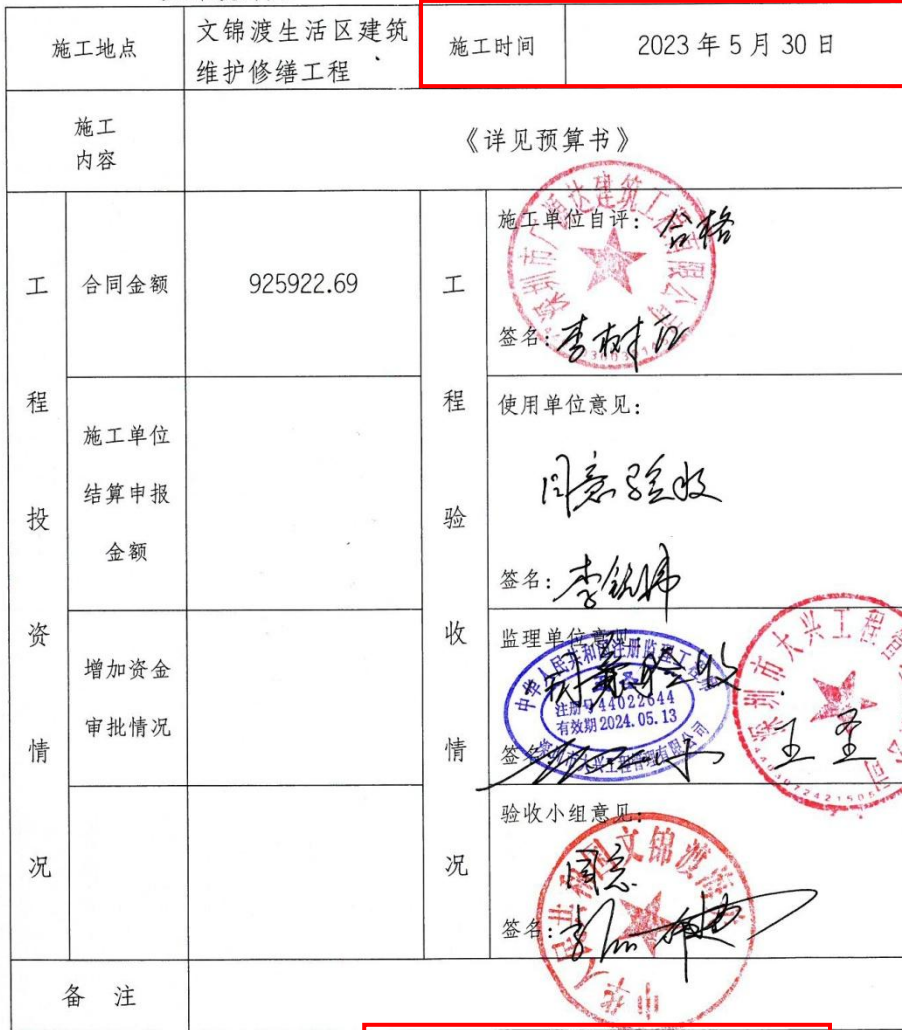 施工地点
文锦渡生活区建筑
维护修缮工程
施工时间
2023年5月30日
施工
内容
《详见预算书》
工程投资情况
合同金额
925922.69
施工单位
结算申报
金额
增加资金
审批情况
工程验收情况
施工单位自评：合格
签名：
使用单位意见：
同意验收
签名：
监理单位意见
同意验收
中华人民共和国注册监理工程师
注册号44022644
有效期2024.05.13
深圳市大兴工程管理有限公司
王圣
验收小组意见：
同意
签名：
备注